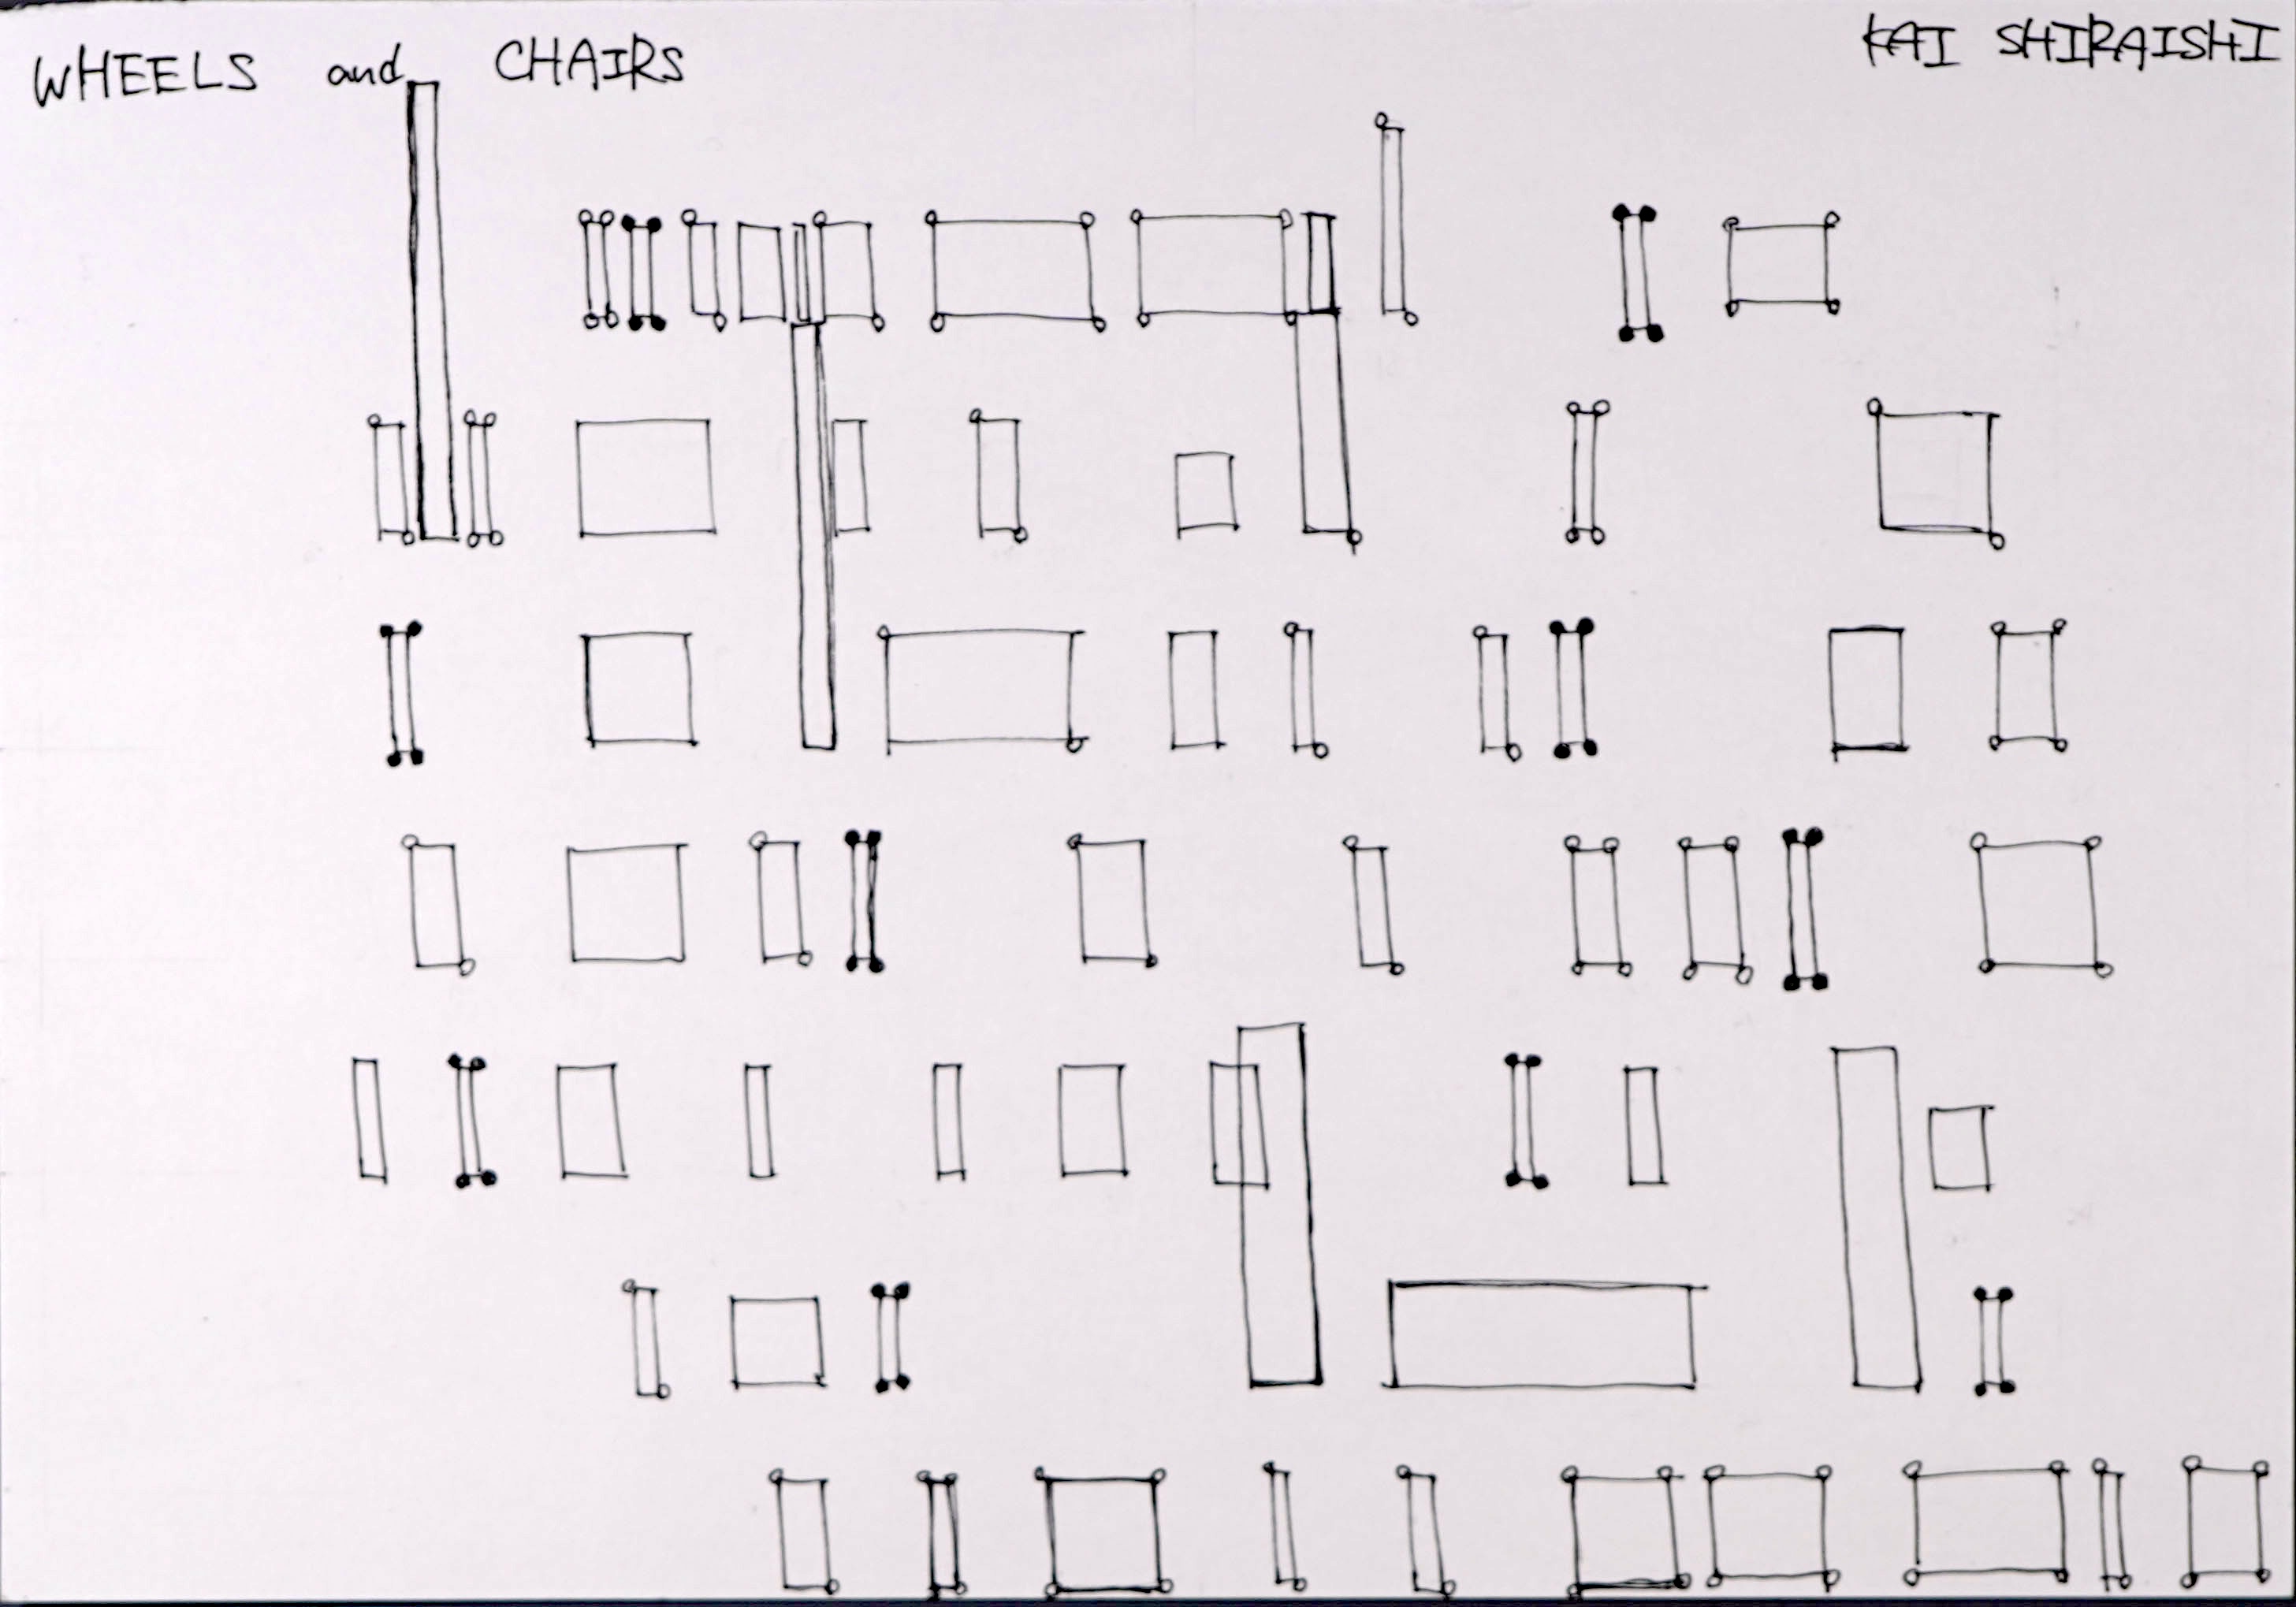 WHEELS and CHAIRS
KAI SHIRAISHI